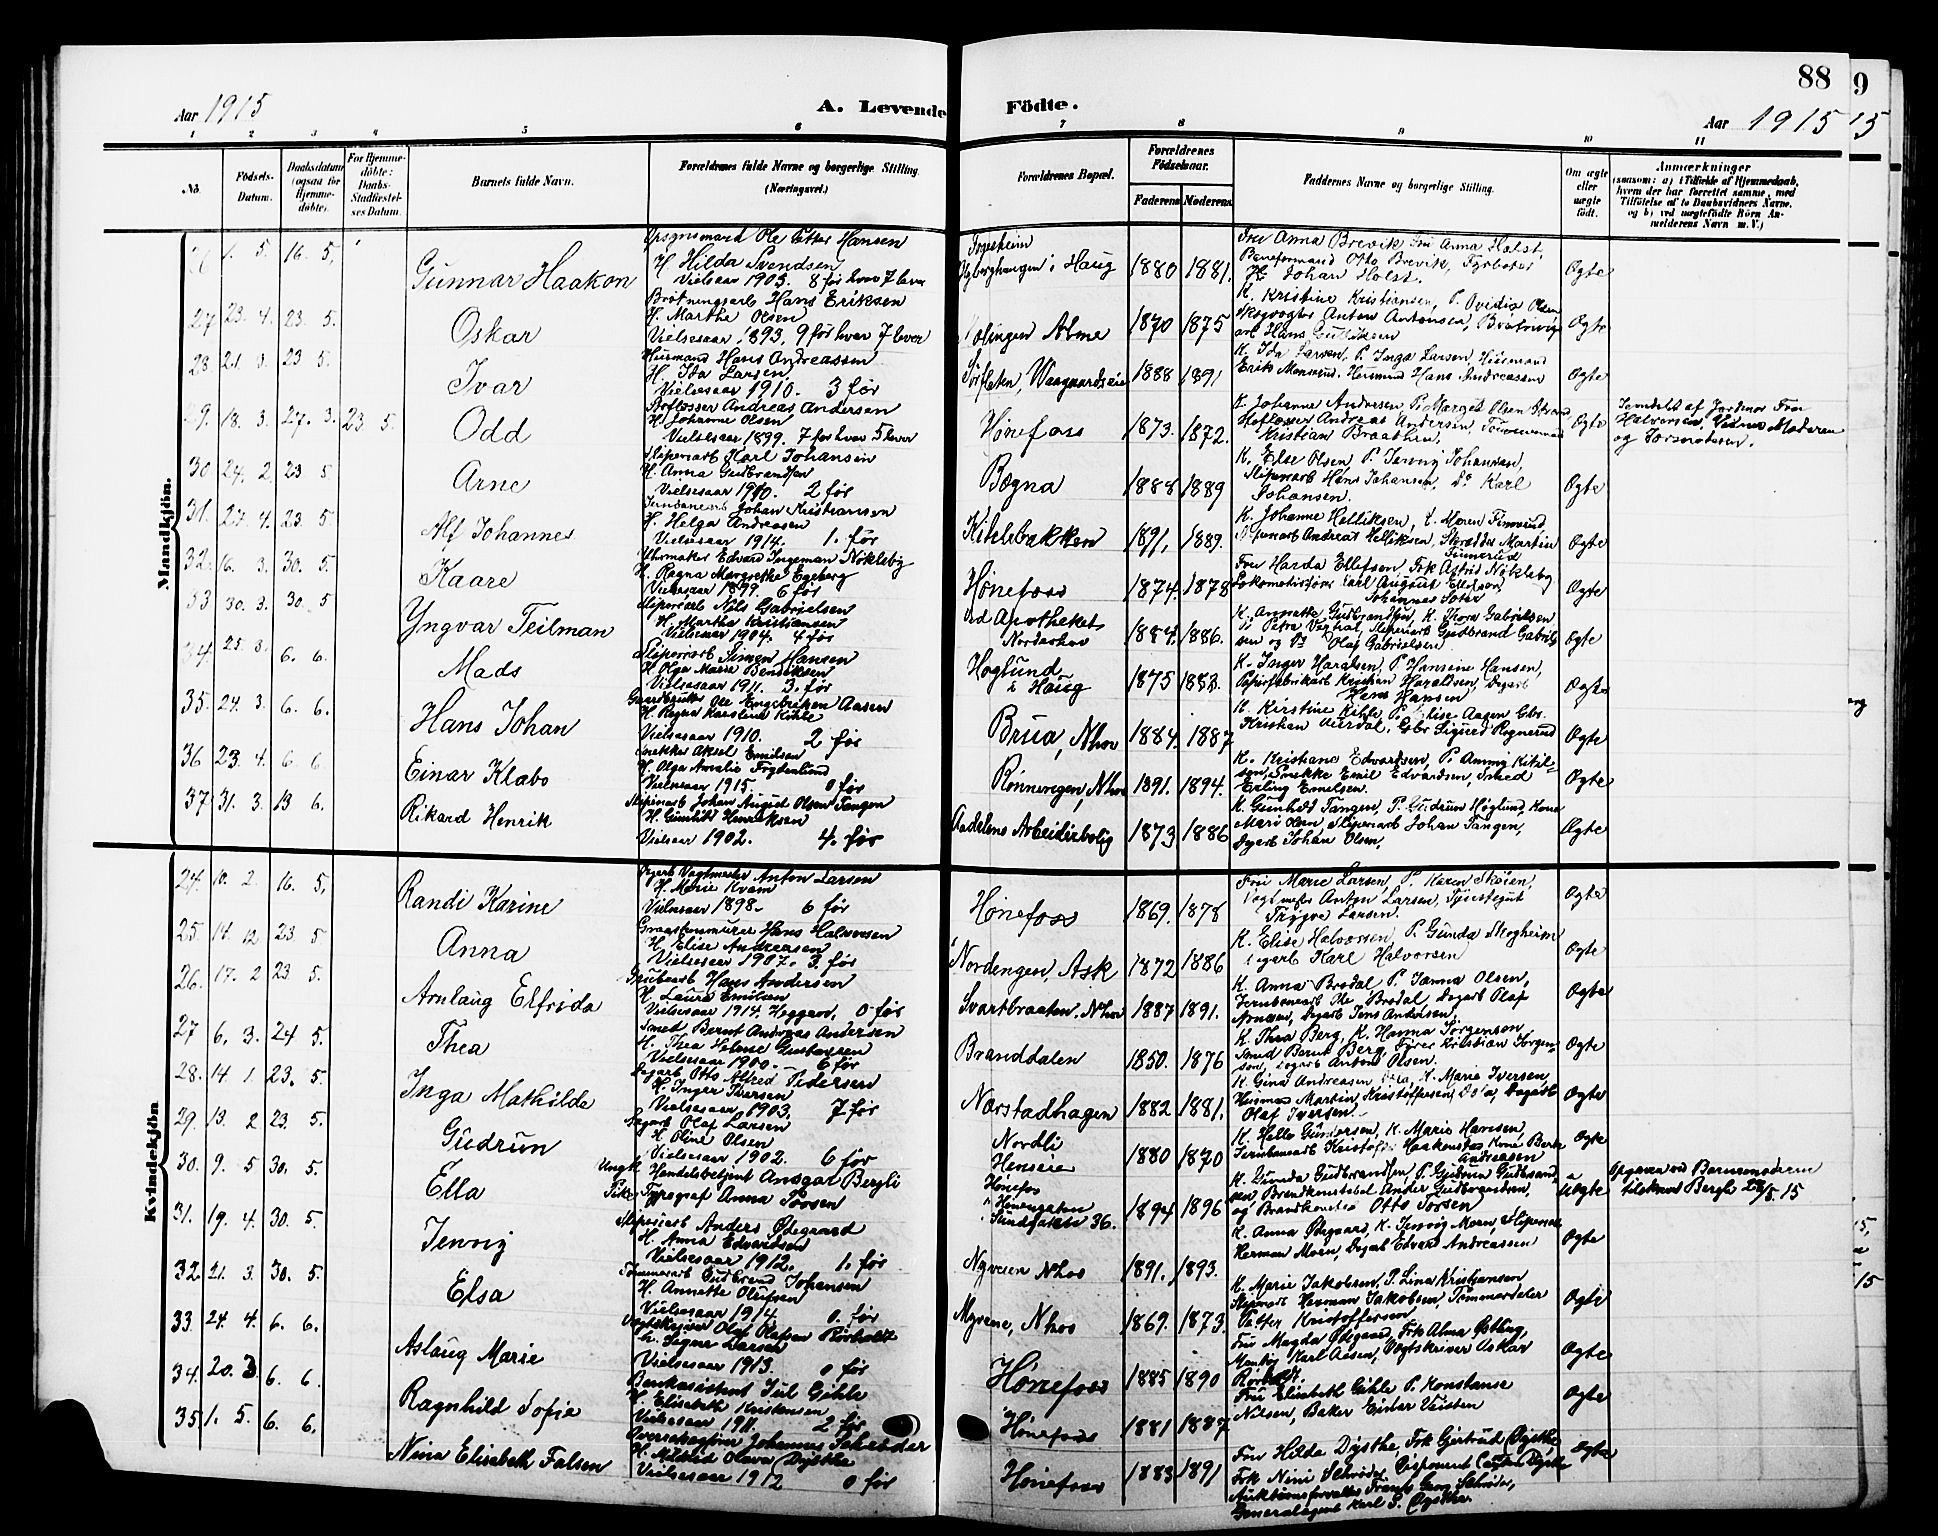 88
9
Aar 1915
A. Levende Födte.
Aar 1915
15
1 2 3 4 5 6 7 8 9 10 11
No.
Födsels-Datum.
Daabsdatum (ogsaa for Hjemme-döbte).
For Hjemme-döbte: Daabs-Stadfæstel-ses Datum.
Barnets fulde Navn.
Forældrenes fulde Navne og borgerlige Stilling. (Næringsvei.)
Forældrenes Bopæl.
Forældrenes Födselsaar.
Faderens Moderens
Faddernes Navne og borgerlige Stilling.
Om ægte eller uægte födt.
Anmærkninger
(saasom: a) i Tilfælde af Hjemmedaab, hvem der har forrettet samme, med Tilföielse af to Daabsvidners Navne. og b) ved uægtefödte Börn An-melderens Navn m. V.)
Mandkjön.
1. 5. 16. 5. Gunnar Haakon
Opsynsmand Ole Petter Hansen
H. Hilda Svendsen
Vielsesaar 1905. 8 før hvor 7 lever
i Haug 1880 1881.
Fru Anna Brevik Fru Anna Holst,
Baneformand Otto Brevik, Fyrbøter
Johan Holst.
Ægte
27 23. 4. 23. 5. Oskar
Brøtningsarb Hans Eriksen
H. Marthe Olsen
Vielsesaar 1893, 9 før hvor 7 lever
Alme 1870 1875
K. Kristine Kristiansen, P. Ovidia Olsen,
Skogvogter Anton Antonsen,
Ægte
28. 21. 3. 23 5. Ivar
Husmand Hans Andreassen
H. Ida Larsen
Vielsesaar 1910. 3 før
Vaagaardseie 1888 1891
K. Ida Larsen, P. Inga Larsen, Husmand
Erik Monserud, Husmand Hans Andreassen
Ægte
29. 18. 3. 27. 3. 23 5. Odd
Andreas Andersen
H. Johanne Olsen
Vielsesaar 1899. 7 før hvor 5 lever
Hønefoss 1873. 1872.
K. Johanne Andersen P. Margit Olsen
Andreas Andersen
Kristian Braathen.
Ægte
af Jordmor Fru
Halvorsen, Vidner Moderen
og Jormoderen.
30 24. 2. 23 5 Arne
Sliperiarb Karl Johansen
H. Anna Gudbrandsen
Vielsesaar 1910. 2 før
Bægna 1888 1889
K. Else Olsen, P. Jenny Johansen,
Sliperiarb Hans Johansen, Do Karl
Johansen.
Ægte
31. 27. 4. 23. 5 Alf Johannes
Jernbanearb Johan Kristiansen
H. Helga Andreasen
Vielsesaar 1914. 1. før
Kihlebakken 1891, 1889.
K. Johanne Helliksen, K. Maren Finnerud,
Sliperiarb Andreas Helliksen, Skrædder Martin
Finnerud
Ægte
32. 16. 3. 30. 5. Kaare
Uhrmaker Edvard Ingeman Nøkleby
H. Ragna Margrethe Egeberg
Vielsesaar 1899. 6 før
Hønefoss 1874. 1878
Fru Harda Ellefsen, Frk Astrid Nøkleby
Karl August Ellefsen,
Johannes
Ægte
33 30. 3. 30. 5 Yngvar Teilman
Sliperiarb Nils Gabrielsen
H. Martha Kristiansen
Vielsesaar 1904. 4 før
Ved Apotheket
Norderhov 1884. 1886.
K. Annette Gudbrandsen, K. Thora Gabrielsen
P. Petra Sliperiarb Gudbrand Gabriel-
sen og Do Olaf Gabrielsen
Ægte
34. 25. 3. 6. 6. Mads
Sliperiarb Simen Hansen
H. Olga Marie Bendiksen
Vielsesaar 1911. 3. før
Høglund
i Haug 1875 1883.
K. Inger Haralsen, P. Hansine Hansen,
Papirfabrikarb Kristian Haraldsen, Dagarb
Hans Hansen
Ægte
35. 24. 3. 6. 6. Hans Johan
Gaardbruker Ole Engebriksen Aasen
H. Ragna Karoline Kihle
Vielsesaar 1910. 2 før
Brua, Nhov 1884. 1887
K. Kirstine Kihle, P. Elise Aasen Gbr.
Kristian Gbr Sigurd Rognerud
Ægte
36 23. 4. 6 6 Einar Klabo
Snekker Aksel Emilsen
H. Olga Amalie Frydenlund
Vielsesaar 1915. 0 før
Rønningen, Nhov 1891. 1894.
K. Kristiane Edvardsen, P. Kihl-
sen, Snekke Emil Edvardsen, Smed
Erling Emilsen.
Ægte
37. 31. 3. 13 6. Rikard Henrik
Sliperiarb Johan August Olsen Tangen
H. Gunhild Henriksen
Vielsaar 1902. 4. før
Aadalens Arbeiderbolig 1873 1886
K. Gunhild Tangen, P. Gudrun Høglund, Kone
Mari Olsen, Sliperiarb Johan Tangen,
Dagarb Johan Olsen.
Ægte
Kvindekjön
24. 10. 2. 16. 5. Randi Karine
Vagtmester Anton Larsen
H. Marie Kvam
Vielsesaar 1898. 6 før
Hønefoss 1869. 1878
Fru Marie Larsen, P. Karen Skøien,
Vagtmester Anton Larsen,
Trygve Larsen.
Ægte
25. 14. 12 23. 5 Anna
Graastensmurer Hans Halvorsen
H. Elise Andreasen
Vielsesaar 1907. 3. før
Nordengen, Ask 1872 1886
K. Elise Halvorsen, P. Gunda Skogheim
Karl Halvorsen
Ægte
26. 17. 2 23 5. Arnlaug Elfrida
Grubearb Hans Andersen
H. Laura Emilsen
Vielsesaar 1914, Heggerov. 0 før
Svartbraaten. Nhov 1887 1891.
K. Anna Brødal, P. Janna Olsen,
Jernbanearb Ole Brødal, Dagarb Olaf
Arnesen, Dagarb Jens Andersen,
Ægte
27 6. 3. 24 5. Thea
Smed, Bernt Andreas Andersen
H. Thea Helene Gustavsen
Vielsesaar 1900. 6 før
Branddalen 1850. 1876
K. Thea Berg, K. Hanna Jørgensen,
Smed Bernt Berg, Fører Kristian Jørgen-
sen, Dagarb Anton Olsen.
Ægte
28. 14 1. 23. 5. Inga Mathilde
Dagarb Otto Alfred Pedersen
H. Inger Iversen
Vielsesaar 1903. 7 før
Narstadhagen 1882 1881.
K. Gina Andreasen K. Marie Iversen,
Husmand Martin Kristoffersen, Dagarb
Olaf Iversen.
Ægte
29. 13. 2 23. 5. Gudrun
Dagarb Olaf Larsen
H. Oline Olsen
Vielsesaar 1902. 6 før
Nordli
Henseie 1880 1870
K. Helle Gundersen, K. Marie Hansen,
Jernbanearb Kristoffer Haakenstad Kone Berte
Andreasen
Ægte
30. 9. 5 30. 5. Ella
Ungk Handelsbetjent Ansgar Bergli
Pike Typograf Anna Torsen
Hønefos
Hønengaten
Sundgaten 36. 1894 1896
K. Gunda Gudbrandsen, P. Gudrun Gudbrand-
sen, Brandkonstabel Ander Gudbrandsen,
og Brandkonstb Otto Torsen
Uægte
Opgaven ved Barnemoderen
tilskrevet Bergli 28/5. 15
31. 19. 4 30. 5. Jenny
Sliperiarb Anders Ødegaard
H. Anna Edvardsen
Vielsesaar 1912. 1. før
Nyveien Nhov 1891. 1893.
K. Anna Ødegaard, K. Jenny Moen, Sliperiarb
Herman Moen, Dagarb Edvard Andreassen
Ægte
32 21. 3. 30. 5. Elsa
Tømmerarb Gudbrand Johansen
H. Annette Olufsen
Vielsesaar 1914. 0. før
Myrene, Nhov 1869. 1873.
K. Marie Jakobsen, P. Lina Kristiansen
Sliperiarb Herman Jakobsen, Tømmerdeler
Petter Kristoffersen.
Ægte
33. 24. 4. 6. 6. Aslaug Marie
Vegtskriver Olaf Olafsen Rørholdt
H. Signe Larsen
Vielsesaar 1913. 0 før
Hønefoss 1885 1890
Fru Magda Ødegaard, Frk Alma Østling,
Karl Aasen, Vegtskriver Oskar
Rørholdt.
Ægte
34. 20. 3. 6. 6. Ragnhild Sofie
Bankasistent Jul Gihle
H. Elisabeth Kristensen
Vielsesaar 1911. 2 før
Hønefoss 1881 1887
Fru Elisabeth Gihle P. Konstanse
Nilsen, Baker Einar Veisten
Ægte
35. 1. 5. 6. 6. Nina Elisabeth Falsen
Overskogfører Johannes Schrøder
H. Mildrid Olava Dysthe
Vielsesaar 1912 0 før
Hønefoss 1883 1891
Fru Hilda Dysthe, Frk Gjertrud Dysthe,
Frk Nini Schrøder Disponent Carsten Dysthe
Auktionsforvalter Frants Georg Schrøder,
Generalagent Karl P. Dysthe.
Ægte